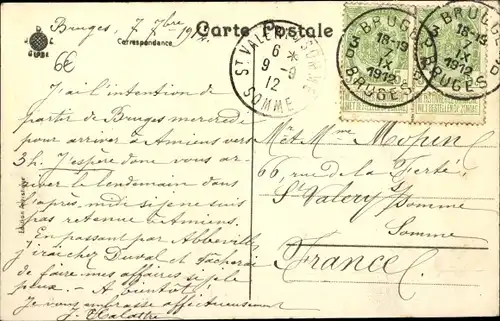 Bruges, 7 7bre 1912.
Carte Postale
Correspondance
6€
J'ai l'intention de
partir de Bruges mercredi
pour arriver à Amiens vers
3h. J'espère donc vous ar-
river le lendemain dans
l'après, midi si je ne suis
pas retenue à Amiens.
En passant par Abbeville
j'irai chez Duval et tâcherai
de faire mes affaires si je le
peux. - A bientôt!
Je vous embrasse affectueusement
J.
ST VALERY SOMME
6 *
9 - 9
12
SOMME
3 BRUGES
18-19
7
IX
1912
BRUGES
BRUGGE
18-19
7
IX
1912
BRUGES
M. et Mme Mopin
66, rue de la Ferté,
St Valery s/ Somme
Somme
France